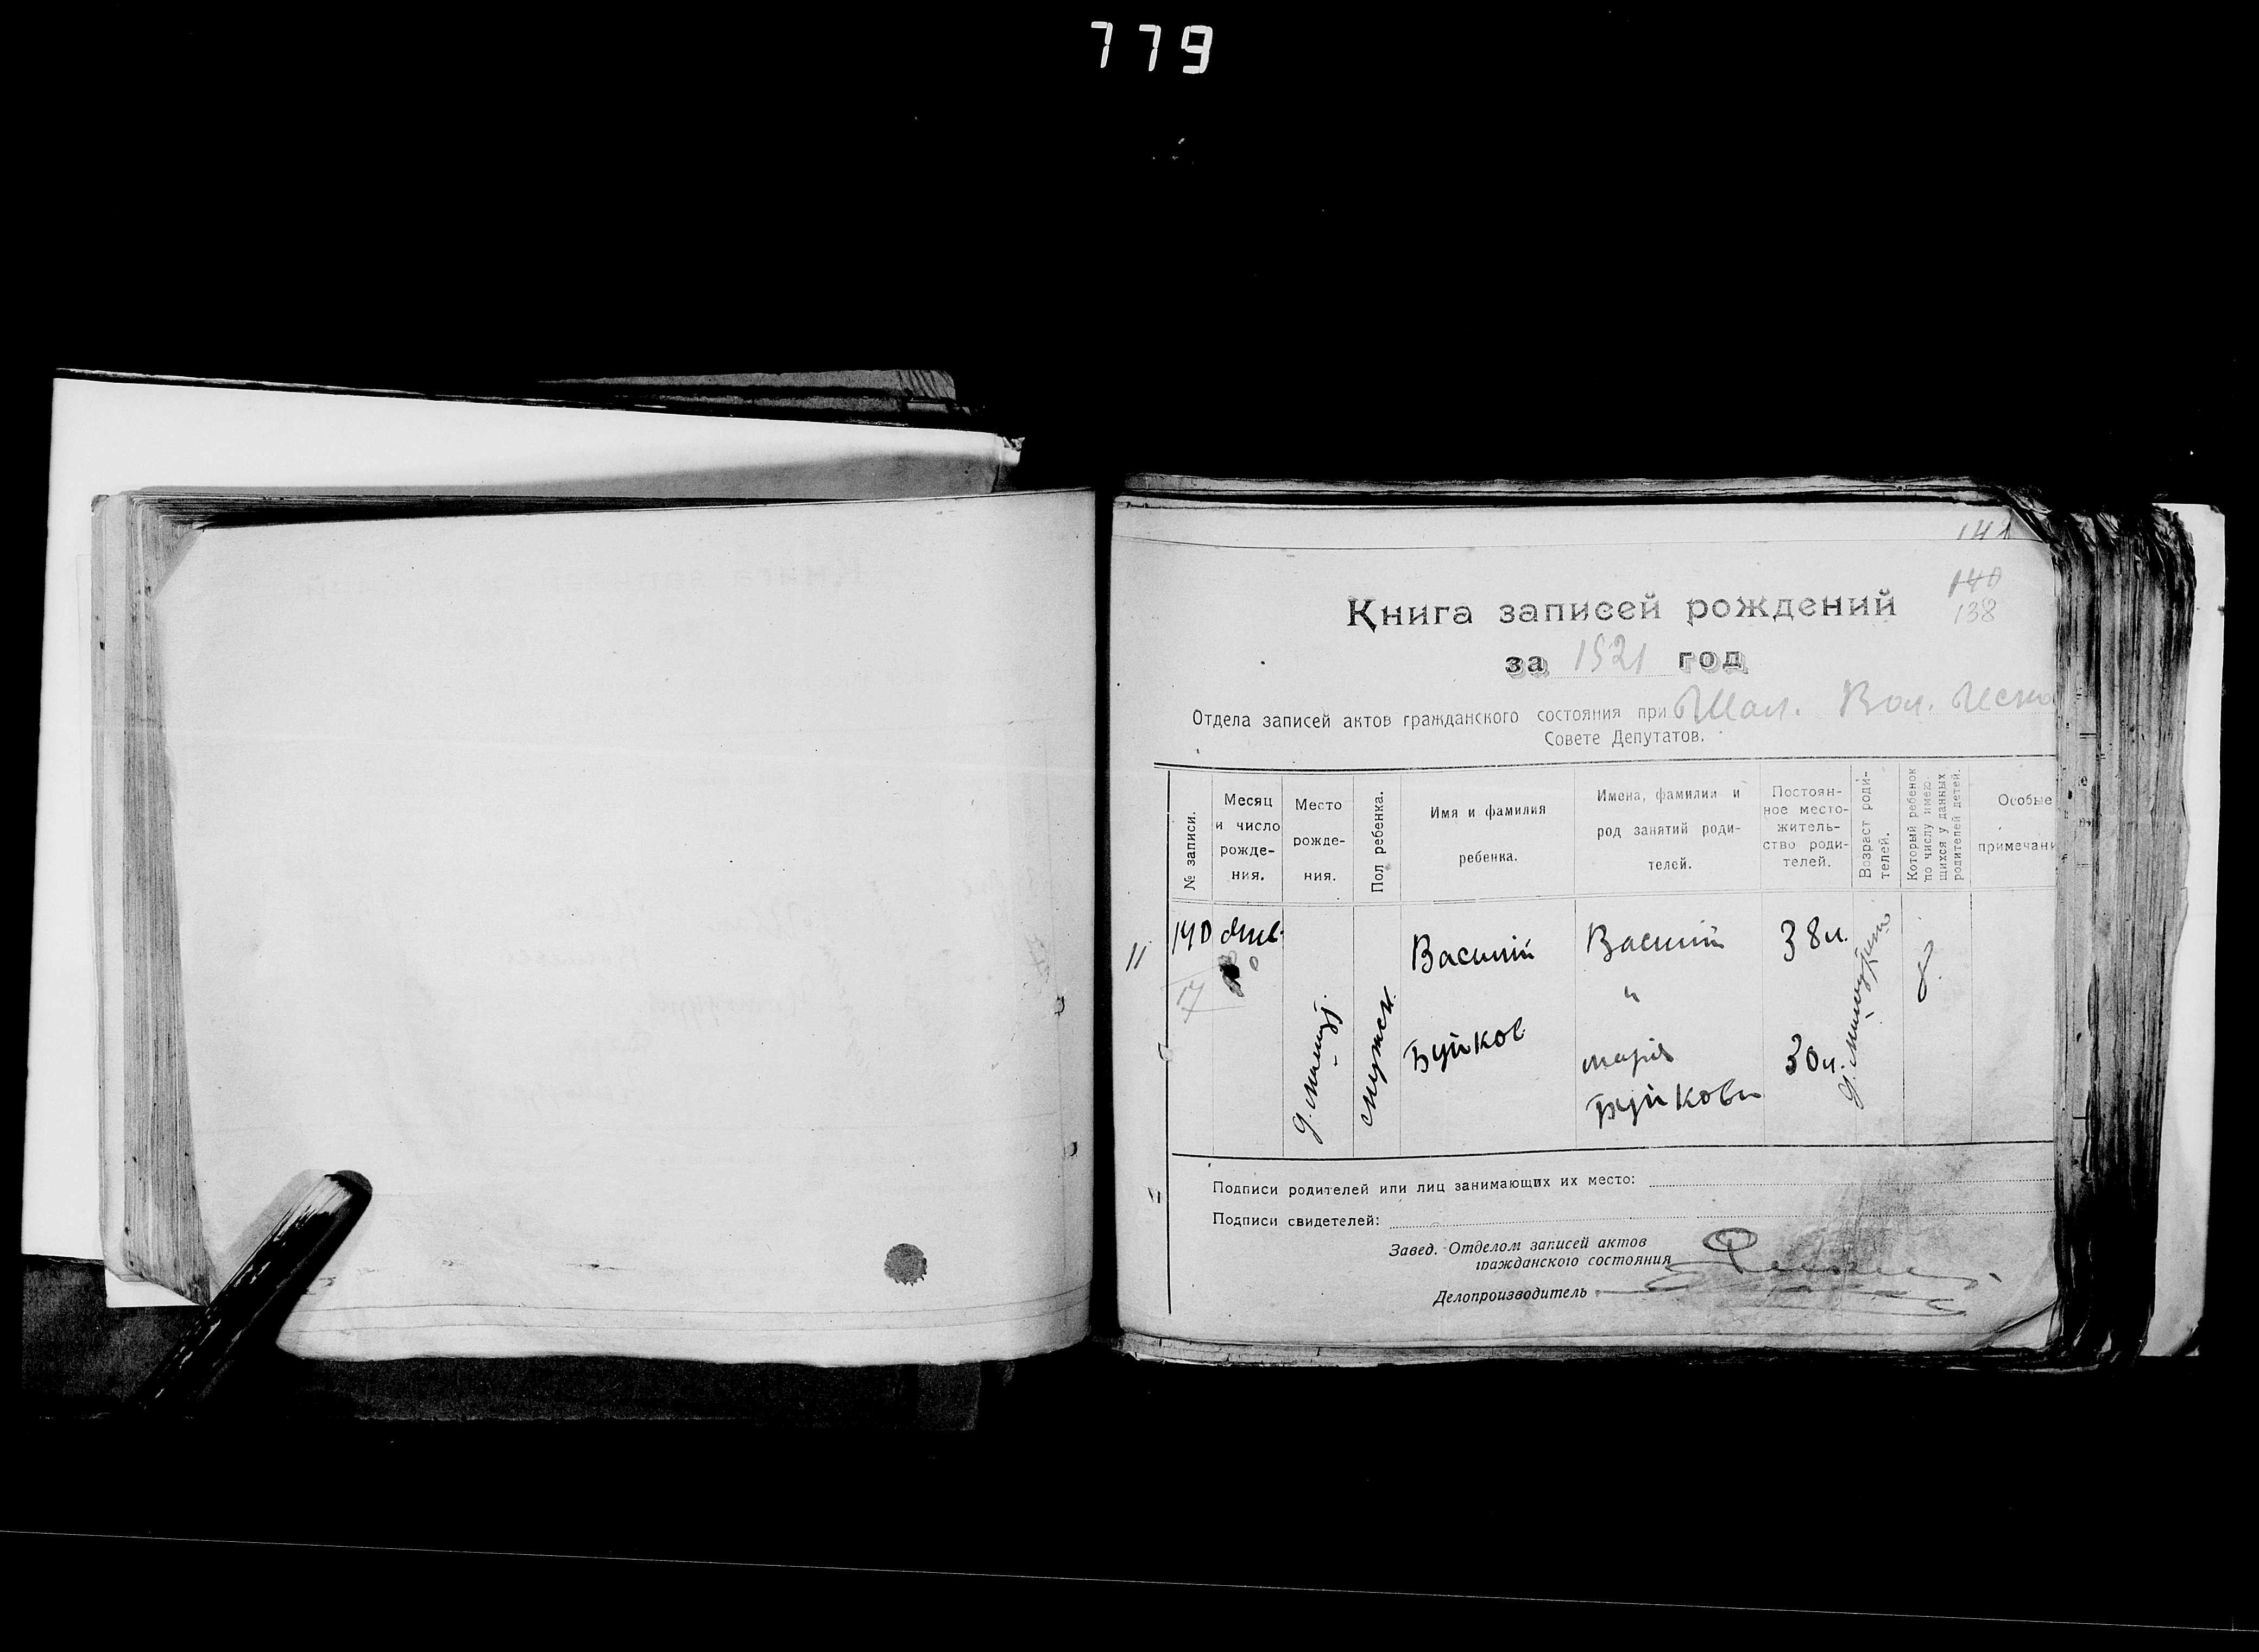 779
141
140
138
Книга записей рождений
за 1921 год
Отдела записей актов гражданского состояния при Шал. Вол. Испо
Совете Депутатов.
№ записи.
Месяц и число рожде- ния.
Место рожде- ния.
Пол ребенка.
Имя и фамилия ребенка.
Имена, фамилии и род занятий роди- телей.
Постоян- ное место- житель- ство роди- телей.
Возраст роди- телей.
Который ребенок по числу имею- щихся у данных родителей детей.
Особые примечани
11
140 Янв.
17
мужск.
Василий
Буйков
Василий
"
Мария
Буйковы
38 л.
30 л.
Подписи родителей или лиц занимающих их место:
Подписи свидетелей:
Завед. Отделом записей актов
гражданского состояния
Делопроизводитель